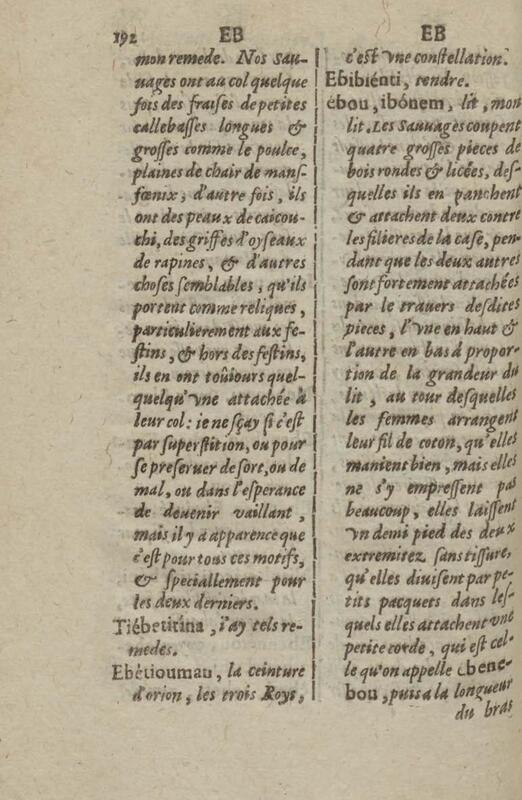 192 EB
mon remede. Nos Sau-
uages ont au col quelque
fois des fraiſes de petites
callebaſſes longues &
groſſes comme le poulce,
plaines de chair de manſ-
fœnix, d'autre fois, ils
ont des peaux de caicou-
chi, des griffes d'oyſeaux
de rapines, & d'autres
choſes ſemblables, qu'ils
portent comme reliques,
particulierement aux fe-
ſtins, & hors des feſtins,
ils en ont toûiours quel-
quelqu'vne attachée à
leur col: ie ne ſçay ſi c'eſt
par ſuperſtition, ou pour
ſe preſeruer de ſort, ou de
mal, ou dans l'eſperance
de deuenir vaillant,
mais il y a apparence que
c'eſt pour tous ces motifs,
& ſpeciallement pour
les deux derniers.
Tiébetitina, i'ay tels re-
medes.
Ebétioumau, la ceinture
d'orion, les trois Roys,
EB
c'eſt vne conſtellation.
Ebibiénti, tendre.
ébou, ibónem, lit, mon
lit. Les Sauuages coupent
quatre groſſes pieces de
bois rondes & licées, deſ-
quelles ils en panchent
& attachent deux contre
les filieres de la caſe, pen-
dant que les deux autres
ſont fortement attachées
par le trauers deſdites
pieces, l'vne en haut &
l'autre en bas à propor-
tion de la grandeur du
lit, au tour deſquelles
les femmes arrangent
leur fil de coton, qu'elles
manient bien, mais elles
ne s'y empreſſent pas
beaucoup, elles laiſſent
vn demi pied des deux
extremitez ſans tiſſure,
qu'elles diuiſent par pe-
tits pacquets dans leſ-
quels elles attachent vne
petite corde, qui eſt cel-
le qu'on appelle ebene-
bou, puis à la longueur
du bras